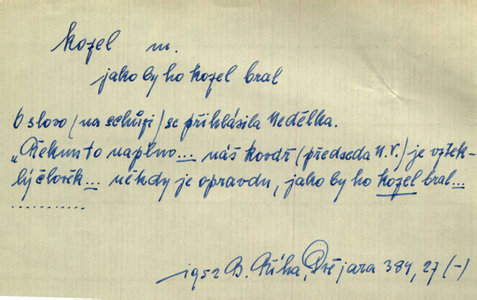 kozel m.
jako by ho kozel bral
O slovo (na schůzi) se přihlásila Nedělka.
„Řeknu to naplno... náš Kovář (předseda N.V.) je vztek-
lý člověk... někdy je opravdu, jako by ho kozel bral...
............
1952 B. Říha, Dvě jara 384, 27 (-)